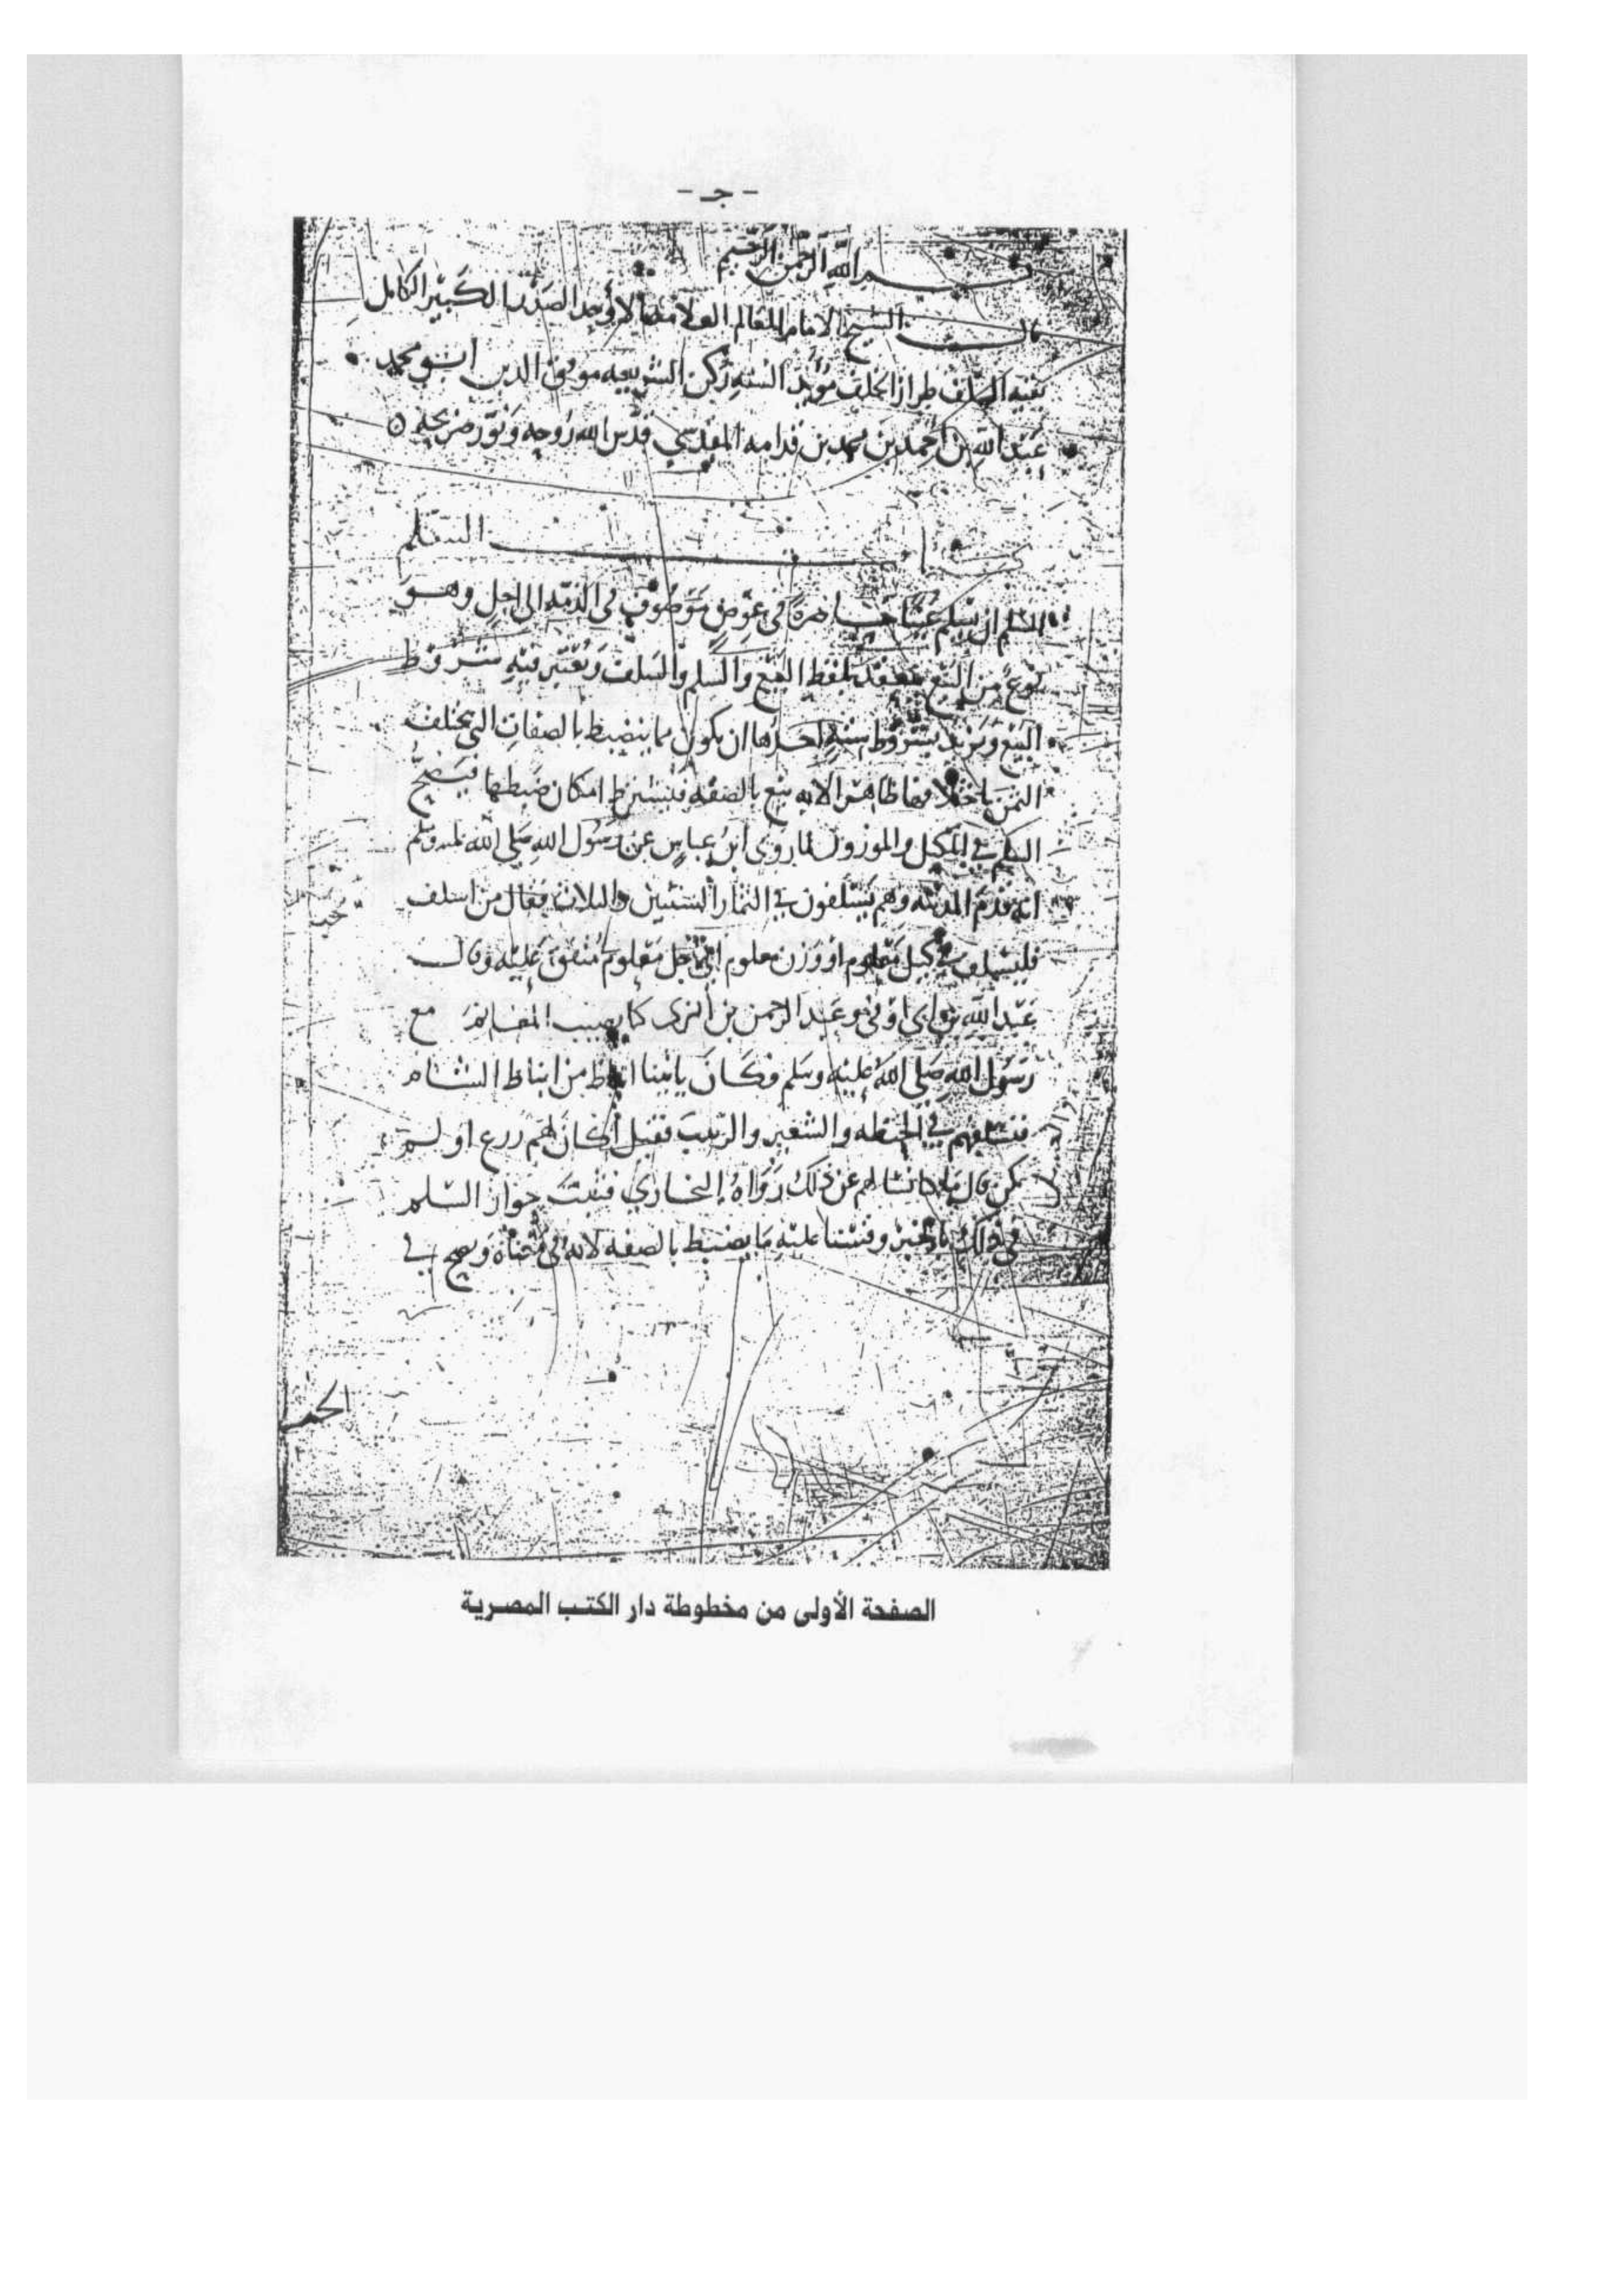 - جـ -
بسم الله الرحمن الرحيم
قال الشيخ الامام العالم العلامة الاوحد الصدر الكبير الكامل
بقية السلف طراز الخلف مؤيد السنه ركن الشريعه موفق الدين ابو محمد
عبد الله بن احمد بن محمد بن قدامه المقدسي قدس الله روحه ونور ضريحه
كتاب السلم
السلم ان يسلم عينا حاضرة في عوض موصوف في الذمه الى اجل وهو
نوع من البيع ينعقد بلفظ البيع والسلم والسلف ويعتبر فيه شروط
البيع ويزيد بشروط سته احدها ان يكون مما ينضبط بالصفات التي يختلف
الثمن باختلافها ظاهرا لانه بيع بالصفه فيشترط امكان ضبطها فيصح
السلم في المكيل والموزون لما روى ابن عباس عن رسول الله صلى الله عليه وسلم
انه قدم المدينه وهم يسلفون في الثمار السنتين والثلاث فقال من اسلف
فليسلف في كيل معلوم او وزن معلوم الى اجل معلوم متفق عليه وقال
عبد الله بن ابي اوفى وعبد الرحمن بن ابزى كنا نصيب المغانم مع
رسول الله صلى الله عليه وسلم وكان ياتينا انباط من انباط الشام
فنسلفهم في الحنطه والشعير والزبيب فقيل اكان لهم زرع او لم
يكن قال ما كنا نسالهم عن ذلك رواه البخاري فثبت جواز السلم
في ذلك بالخبر وقسنا عليه ما يضبط بالصفه لانه في معناه ويصح في
الصفحة الأولى من مخطوطة دار الكتب المصرية